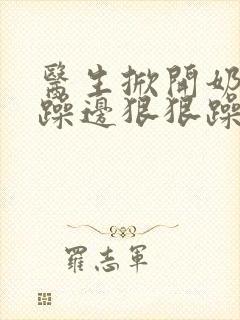 醫生掀開奶
躁邊狠狠躁
羅志軍